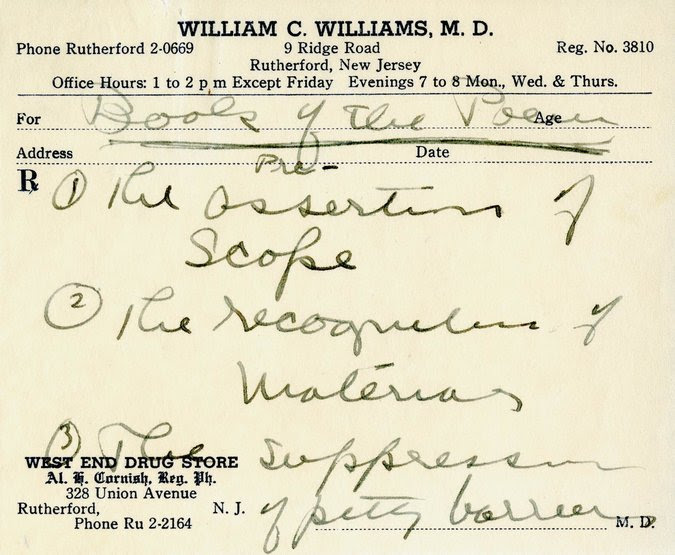 WILLIAM C. WILLIAMS, M. D.
Phone Rutherford 2-0669 9 Ridge Road Reg. No. 3810
Rutherford, New Jersey
Office Hours: 1 to 2 p m Except Friday Evenings 7 to 8 Mon., Wed. & Thurs.
For Books of the Poem Age
Address Date
Pre-
℞ ① The assertion of
Scope
② The recognition of
Materials
③ The suppression
WEST END DRUG STORE
Al. H. Cornish, Reg. Ph.
328 Union Avenue
Rutherford, N. J. of petty barriers
Phone Ru 2-2164 M. D.